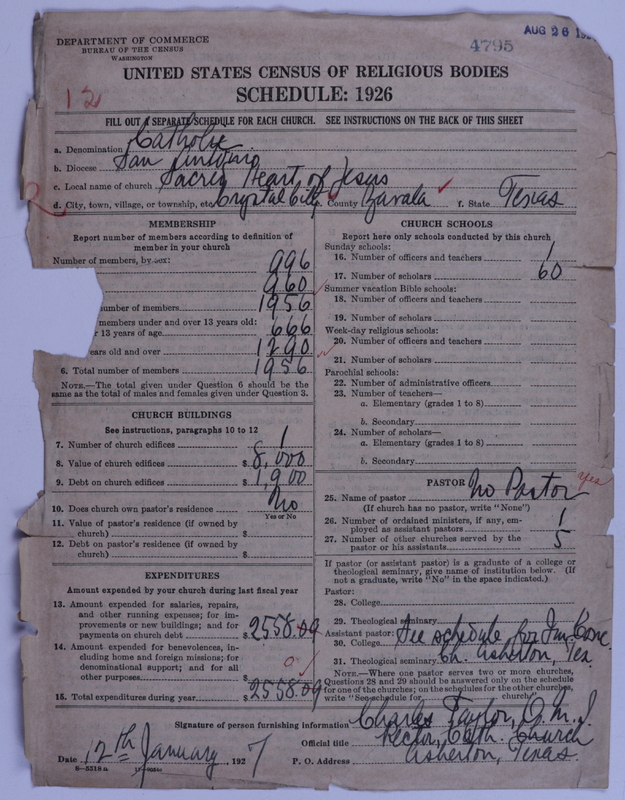 DEPARTMENT OF COMMERCE
BUREAU OF THE CENSUS
WASHINGTON
4795
AUG 26 192
UNITED STATES CENSUS OF RELIGIOUS BODIES
SCHEDULE: 1926
12
FILL OUT A SEPARATE SCHEDULE FOR EACH CHURCH. SEE INSTRUCTIONS ON THE BACK OF THIS SHEET
a. Denomination Catholic
b. Diocese San Antonio
c. Local name of church Sacred Heart of Jesus
d. City, town, village, or township, etc. Crystal City County Zavala f. State Texas
2
MEMBERSHIP
Report number of members according to definition of
member in your church
Number of members, by sex:
996
960
number of members 1956
members under and over 13 years old:
r 13 years of age 666
ears old and over 1290
6. Total number of members 1956
NOTE.—The total given under Question 6 should be the
same as the total of males and females given under Question 3.
CHURCH BUILDINGS
See instructions, paragraphs 10 to 12
7. Number of church edifices 1
8. Value of church edifices $ 8,000
9. Debt on church edifices $ 1,900
10. Does church own pastor's residence No
Yes or No
11. Value of pastor's residence (if owned by
church) $
12. Debt on pastor's residence (if owned by
church) $
EXPENDITURES
Amount expended by your church during last fiscal year
13. Amount expended for salaries, repairs,
and other running expenses; for im-
provements or new buildings; and for
payments on church debt $ 2558.09
14. Amount expended for benevolences, in-
cluding home and foreign missions; for
denominational support; and for all
other purposes $
0
15. Total expenditures during year $ 2558.09
CHURCH SCHOOLS
Report here only schools conducted by this church
Sunday schools:
16. Number of officers and teachers 1
17. Number of scholars 60
Summer vacation Bible schools:
18. Number of officers and teachers
19. Number of scholars
Week-day religious schools:
20. Number of officers and teachers
21. Number of scholars
Parochial schools:
22. Number of administrative officers
23. Number of teachers—
a. Elementary (grades 1 to 8)
b. Secondary
24. Number of scholars—
a. Elementary (grades 1 to 8)
b. Secondary
PASTOR
yes
25. Name of pastor No Pastor
(If church has no pastor, write "None")
26. Number of ordained ministers, if any, em-
ployed as assistant pastors 1
27. Number of other churches served by the
pastor or his assistants 5
If pastor (or assistant pastor) is a graduate of a college or
theological seminary, give name of institution below. (If
not a graduate, write "No" in the space indicated.)
Pastor:
28. College
29. Theological seminary
Assistant pastor: See schedule for
30. College
Ch. Asherton, Tex.
31. Theological seminary
NOTE.—Where one pastor serves two or more churches,
Questions 28 and 29 should be answered only on the schedule
for one of the churches; on the schedules for the other churches,
write "See schedule for church"
Signature of person furnishing information Charles Taylor, O.M.I.
Official title Rector, Cath. Church
Date 12th January, 1927 P. O. Address Asherton, Texas.